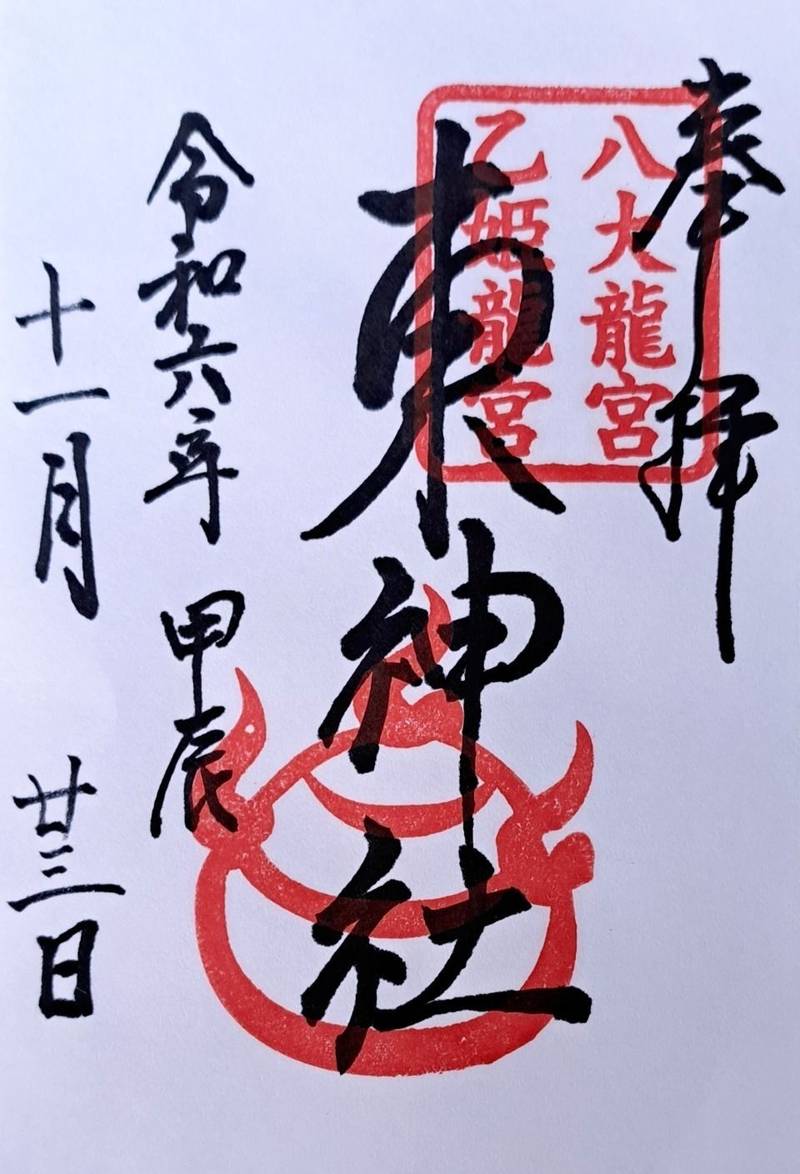 奉拝
八大龍宮
乙姫龍宮
東神社
令和六年 甲辰
十一月 廿三日